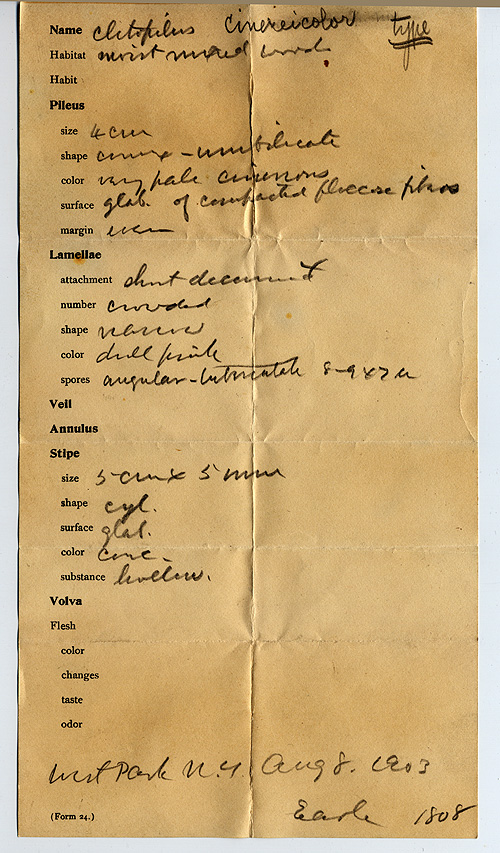 Name Clitopilus cinereicolor type
Habitat moist mixed woods
Habit
Pileus
size 4 cm
shape convex - umbilicate
color very pale cinereous
surface glab. of compacted floccose fibers
margin even
Lamellae
attachment short decurrent
number crowded
shape narrow
color dull pink
spores angular - tuberculate 8-9 x 7 u
Veil
Annulus
Stipe
size 5 cm x 5 mm
shape cyl.
surface glab.
color conc.
substance hollow.
Volva
Flesh
color
changes
taste
odor
West Park N.Y. Aug 8. 1903
(Form 24.) Earle 1808